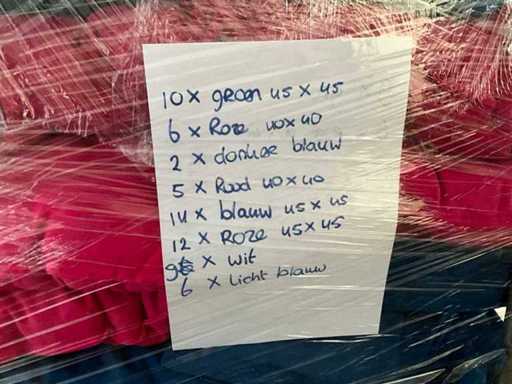 10 x groen 45 x 45
6 x Roze 40x40
2 x donker blauw
5 x Rood 40x40
14 x blauw 45 x 45
12 x Roze 45x45
9 x wit
6 x licht blauw